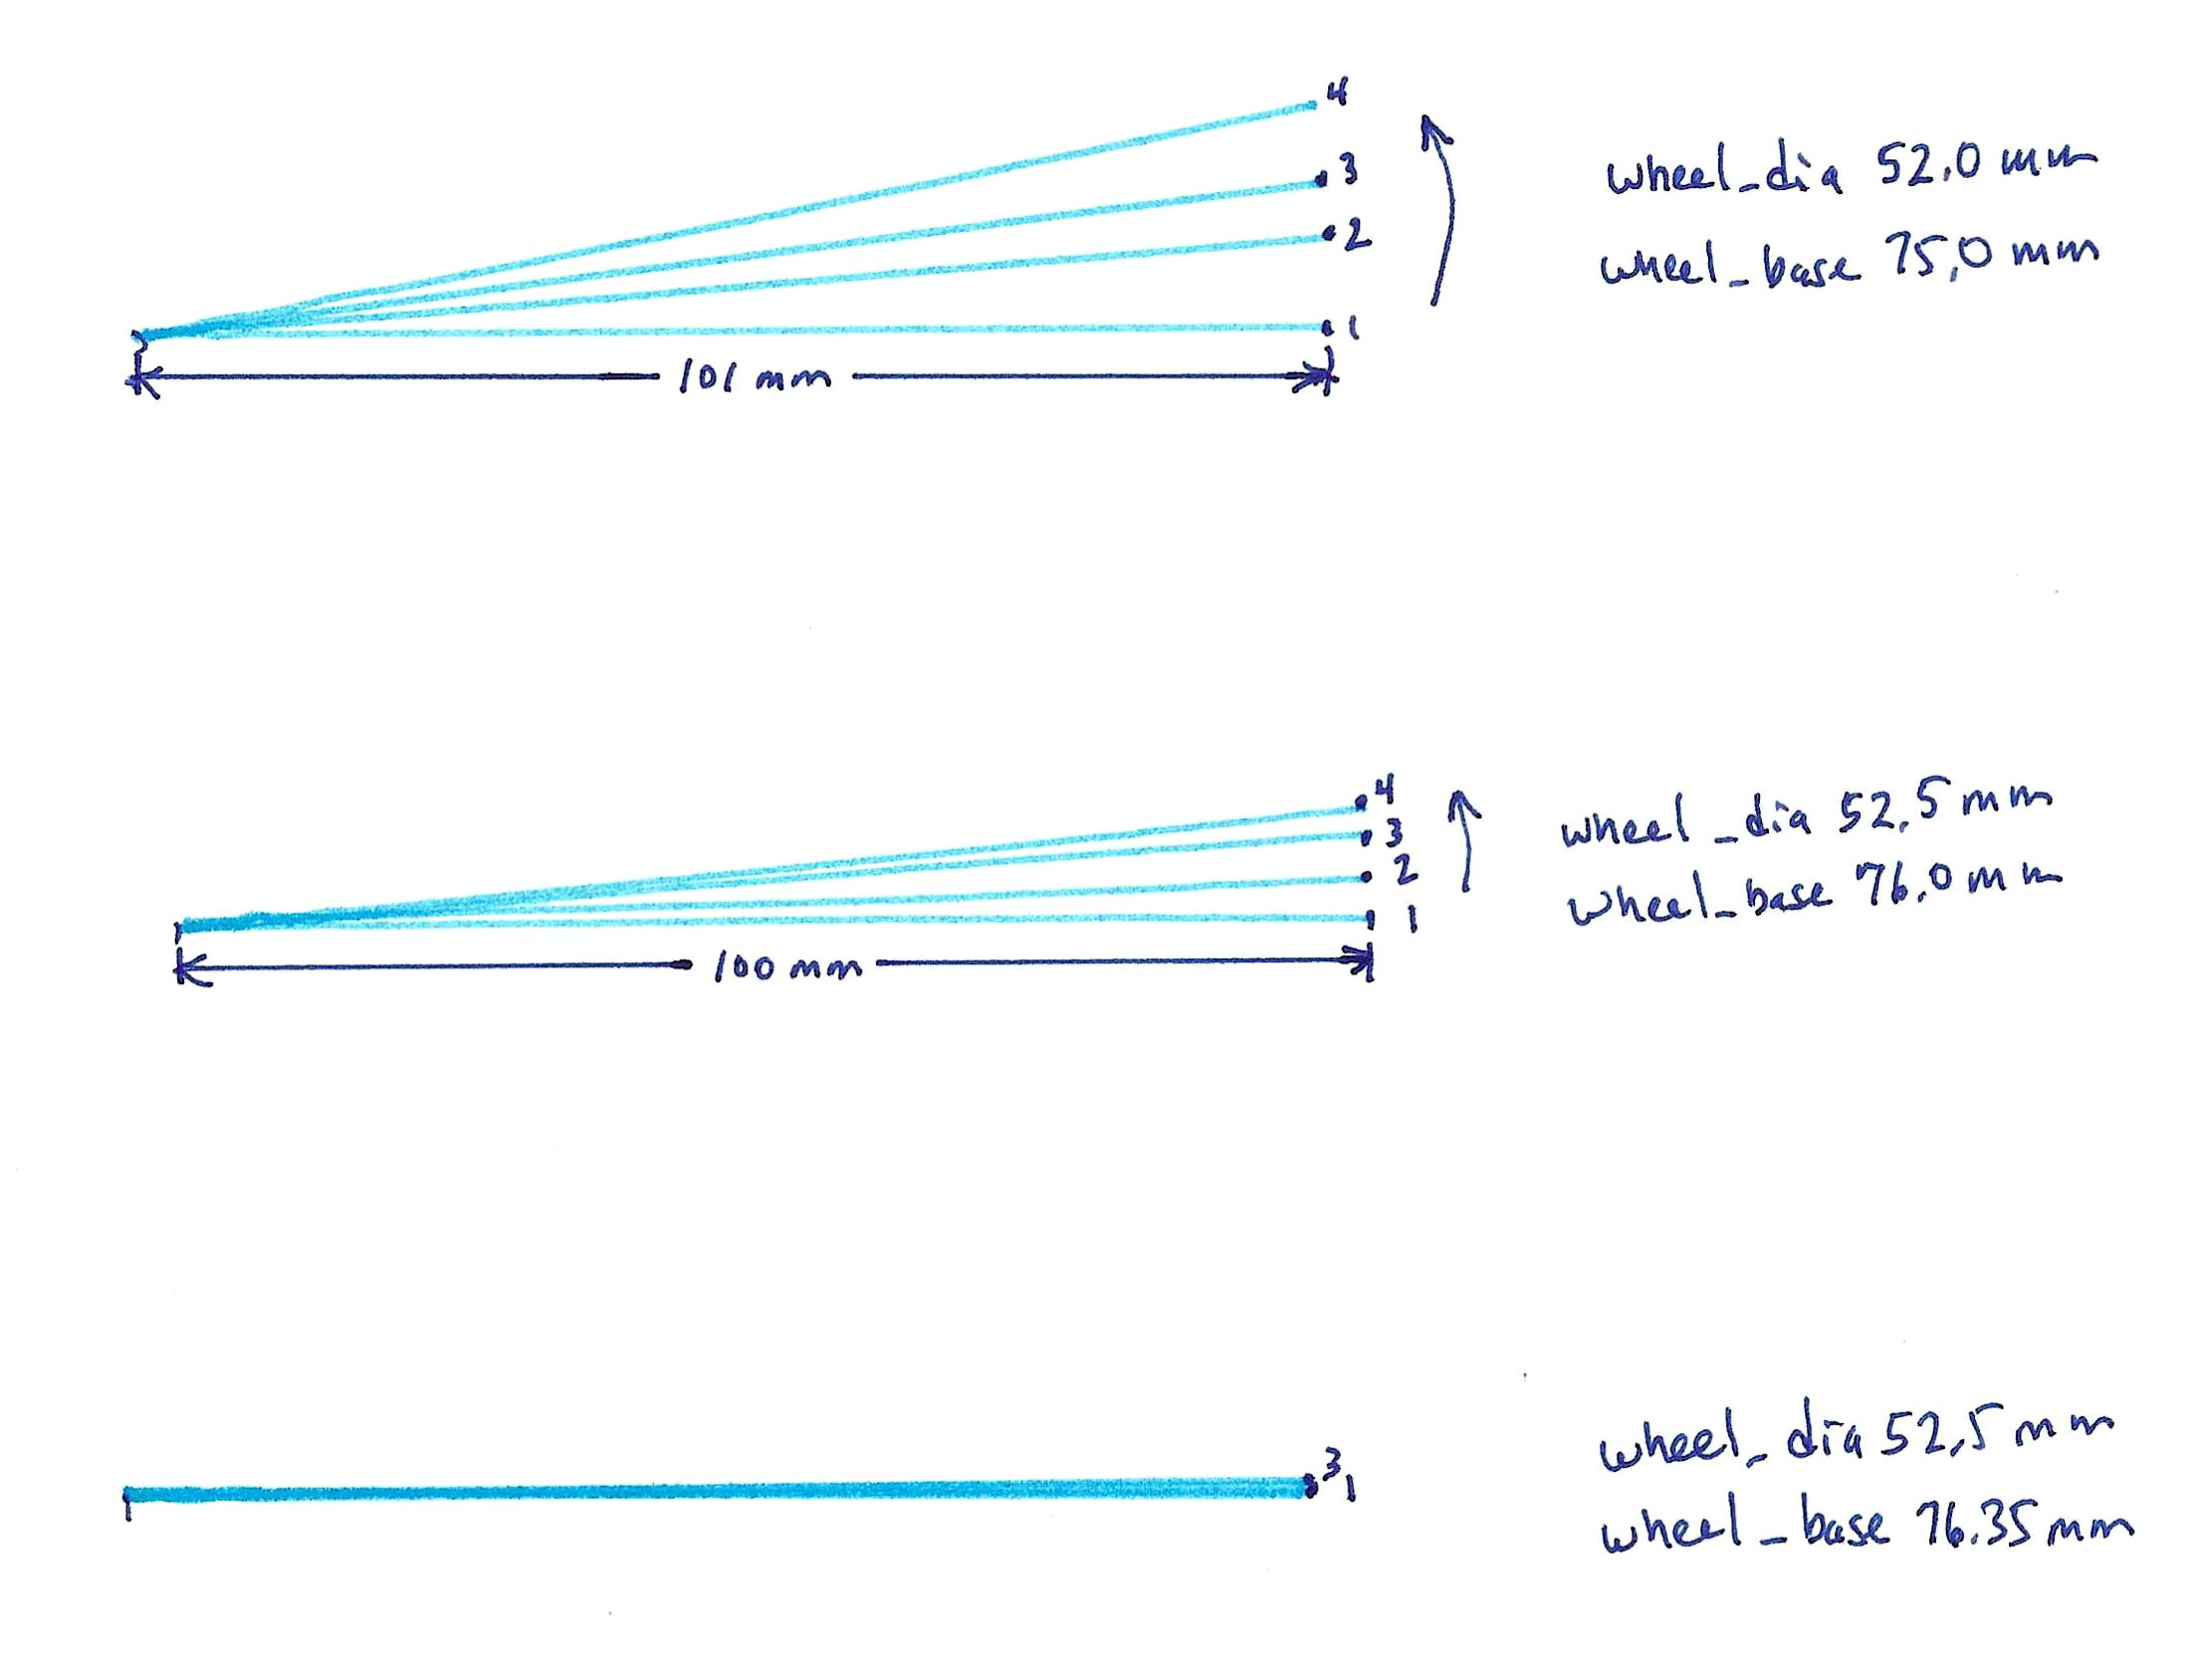 4
3
2
1
101 mm
wheel_dia 52.0 mm
wheel_base 75.0 mm
4
3
2
1
100 mm
wheel_dia 52.5 mm
wheel_base 76.0 mm
3
1
wheel_dia 52.5 mm
wheel_base 76.35 mm